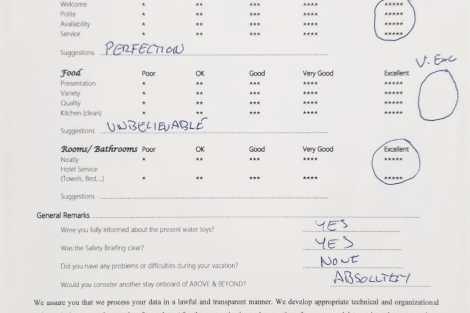 Welcome * ** *** **** *****
Polite * ** *** **** *****
Availability * ** *** **** *****
Service * ** *** **** *****
Suggestions PERFECTION
V. Exc
Food Poor OK Good Very Good Excellent
Presentation * ** *** **** *****
Variety * ** *** **** *****
Quality * ** *** **** *****
Kitchen (clean) * ** *** **** *****
Suggestions UNBELIEVABLE
Rooms/ Bathrooms Poor OK Good Very Good Excellent
Neatly * ** *** **** *****
Hotel Service
(Towels, Bed...) * ** *** **** *****
Suggestions
General Remarks
Were you fully informed about the present water toys? YES
Was the Safety Briefing clear? YES
Did you have any problems or difficulties during your vacation? NONE
Would you consider another stay onboard of ABOVE & BEYOND? ABSOLUTELY
We assure you that we process your data in a lawful and transparent manner. We develop appropriate technical and organizational